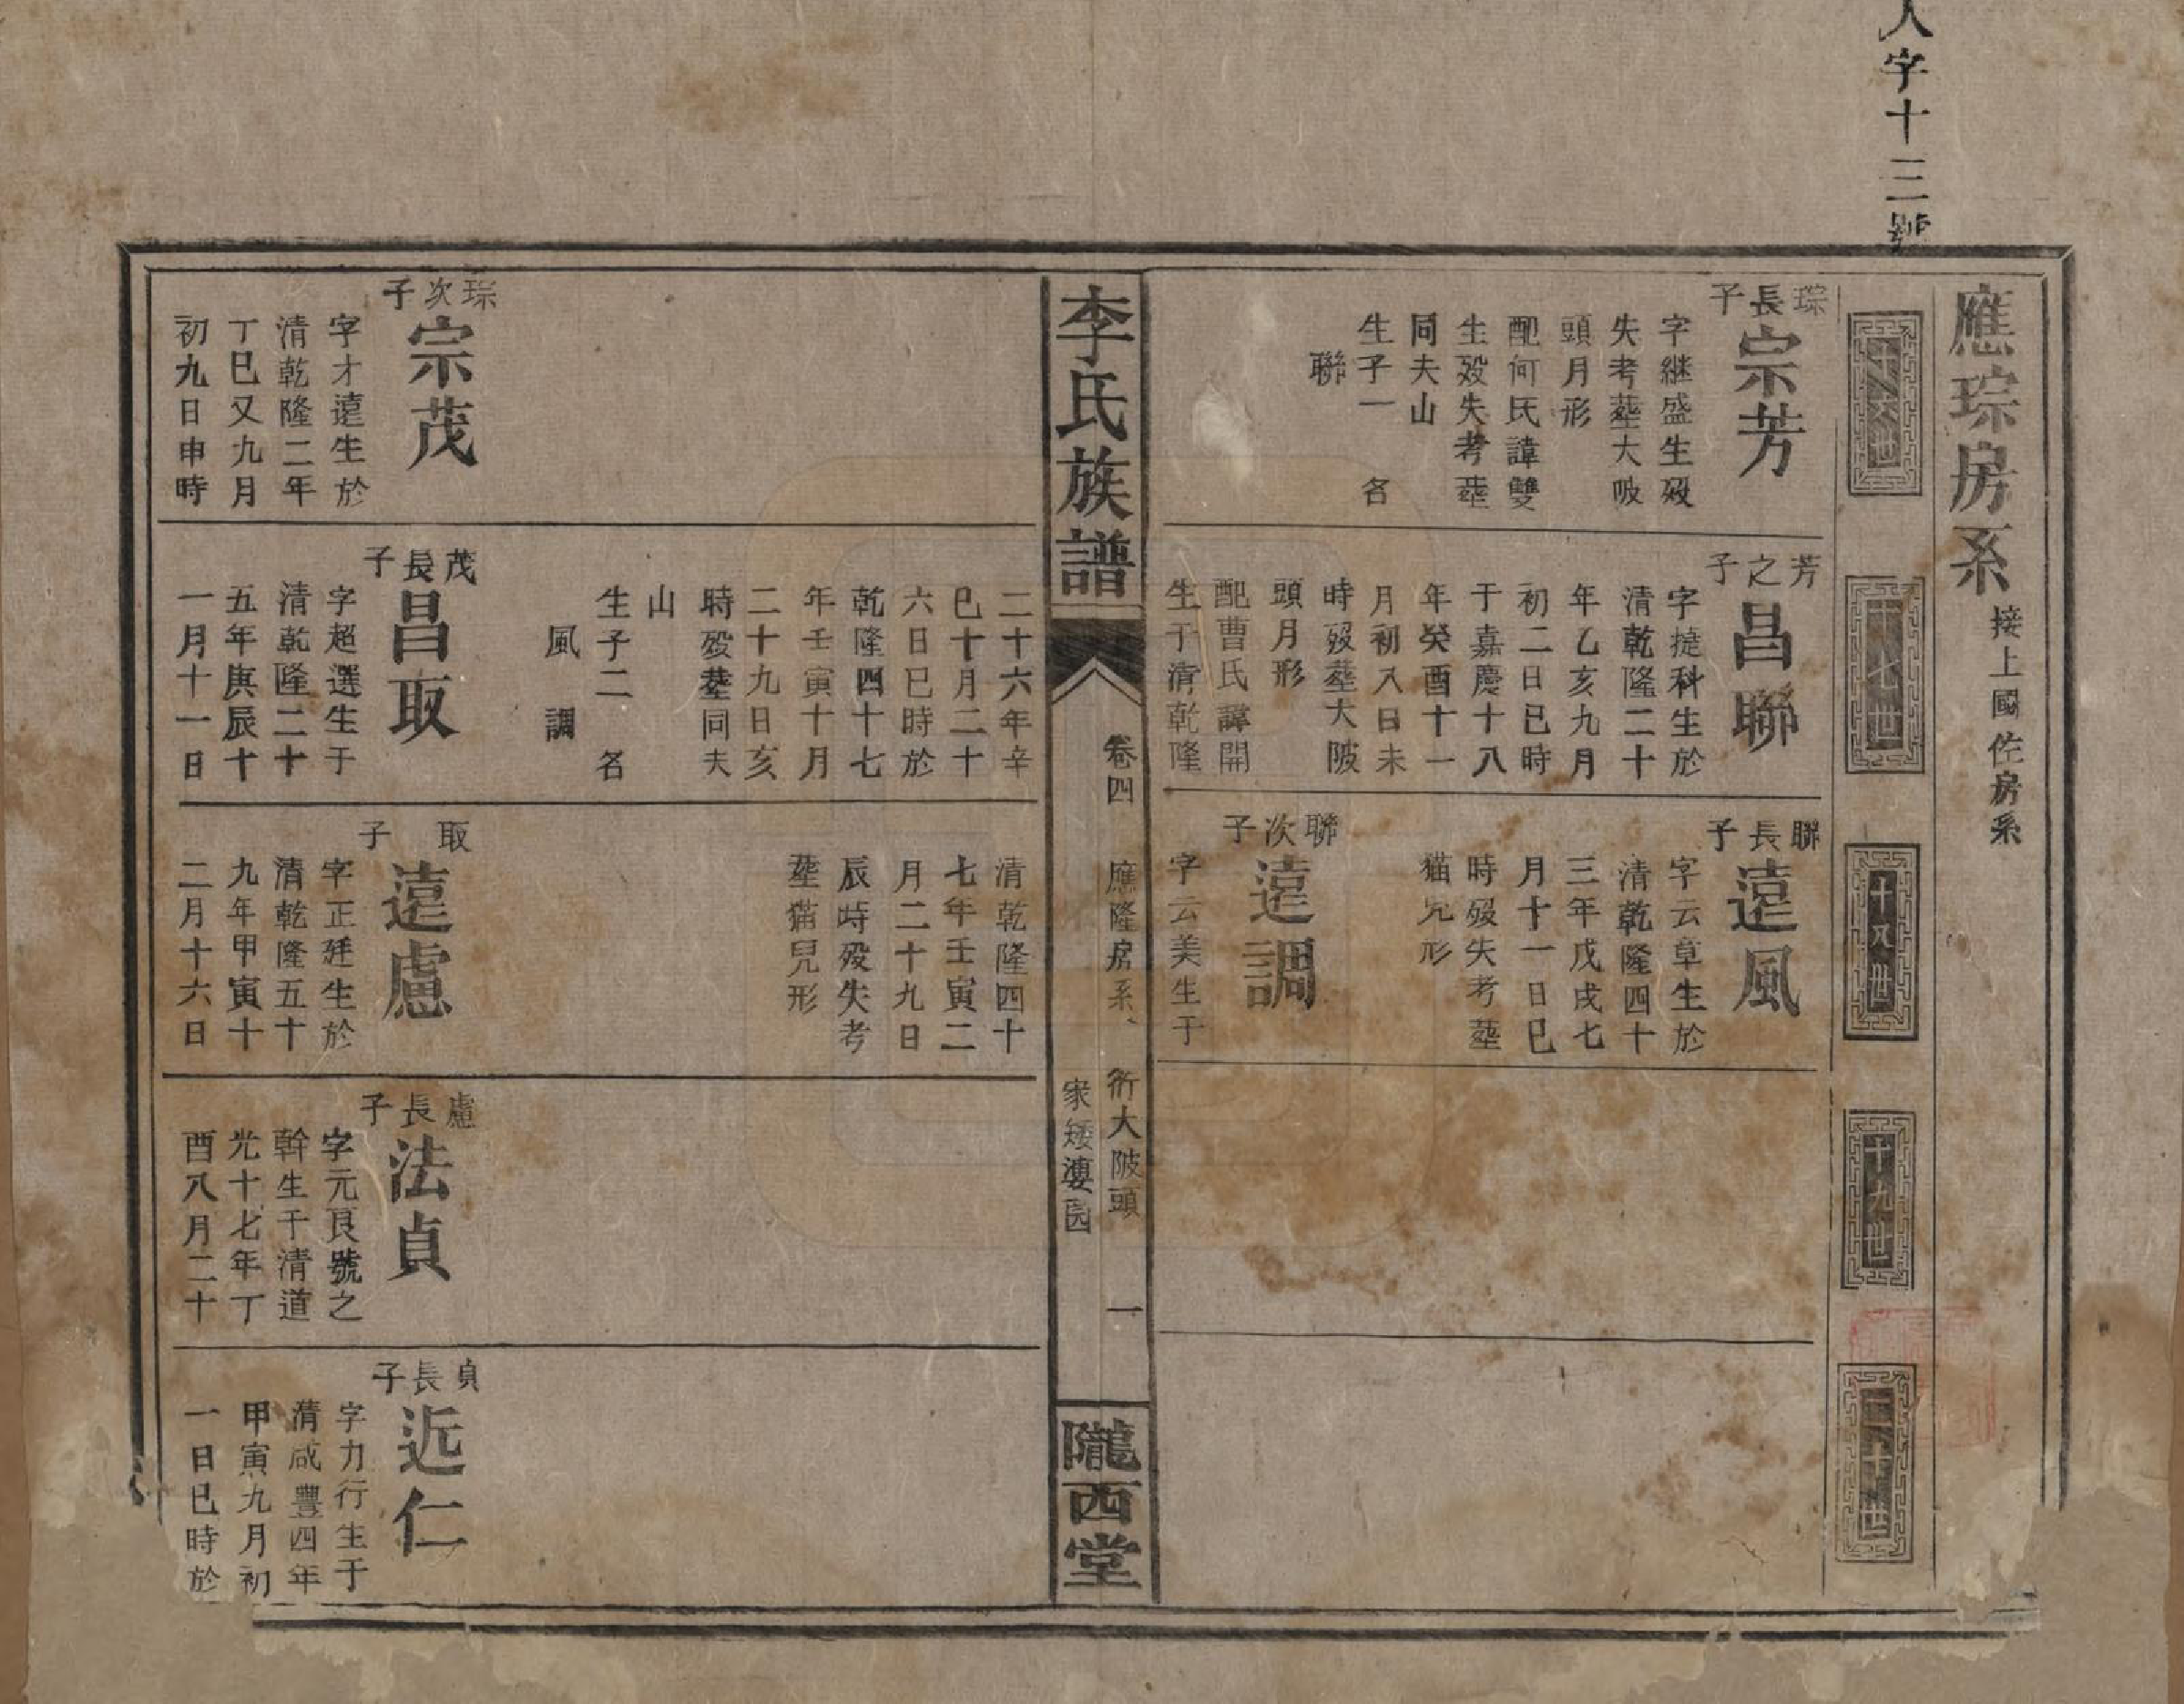 人字十三號
應琮房系
接上國佐房系
十六世
十七世
十八世
十九世
二十世
琮長子
宗芳
字継盛生殁
失考塟大吸
頭月形
配何氏諱雙
生殁失考塟
同夫山
生子一　名
聯
芳之子
昌聯
字㨗科生於
清乾隆二十
年乙亥九月
初二日巳時
于嘉慶十八
年癸酉十一
月初八日未
時殁塟大陂
頭月形
配曹氏諱開
生于清乾隆
聯長子
遠風
字云章生於
清乾隆四十
三年戊戌七
月十一日巳
時殁失考塟
猫兒形
聯次子
遠調
字云美生于
李氏族譜
卷四
應隆房系、
衖大陂頭
家矮凄园
一
隴西堂
二十六年辛
巳十月二十
六日巳時於
乾隆四十七
年壬寅十月
二十九日亥
時殁塟同夫
山
生子二　名
風　調
清乾隆四十
七年壬寅二
月二十九日
辰時殁失考
塟猫兒形
琮次子
宗茂
字才遠生於
清乾隆二年
丁巳又九月
初九日申時
茂長子
昌取
字超選生于
清乾隆二十
五年庚辰十
一月十一日
取　子
遠慮
字正廷生於
清乾隆五十
九年甲寅十
二月十六日
慮長子
法貞
字元良號之
幹生于清道
光十七年丁
酉八月二十
貞長子
近仁
字力行生于
清咸豐四年
甲寅九月初
一日巳時於